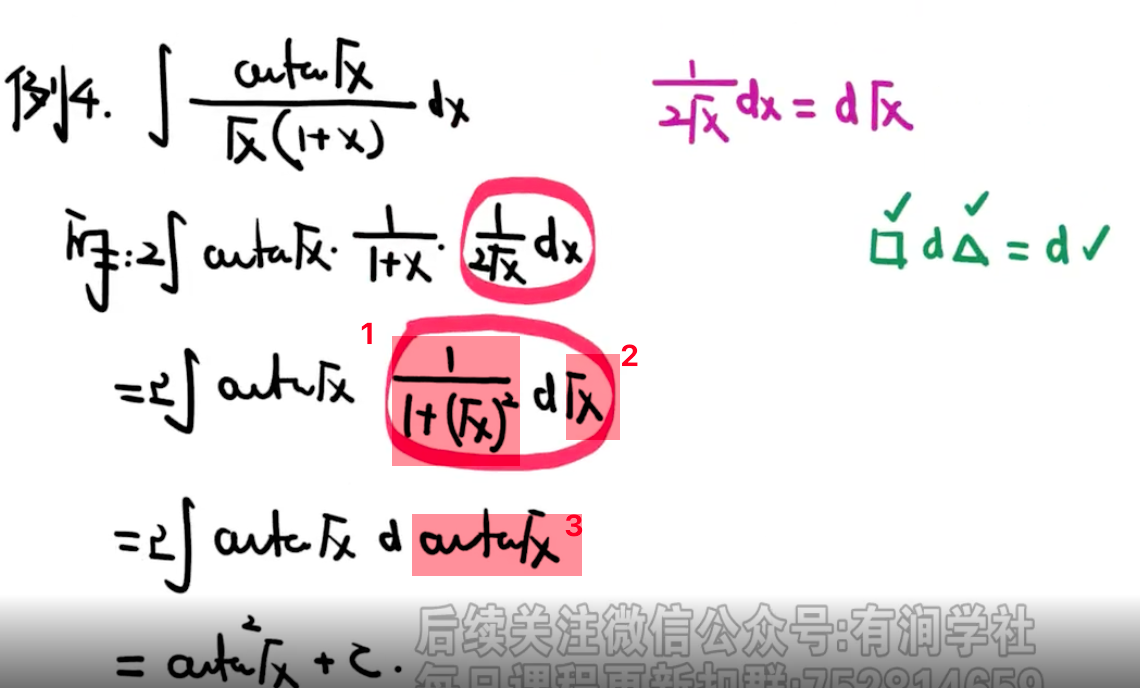 例4. ∫ arctan√x / (√x(1+x)) dx
1/(2√x) dx = d√x
原式: 2∫ arctan√x · 1/(1+x) · 1/(2√x) dx
□ d△ = d✓
1
2
= 2∫ arctan√x 1/(1+(√x)²) d√x
3
= 2∫ arctan√x d arctan√x
= arctan²√x + C.
后续关注微信公众号:有润学社
每日课程更新扣群:752814659